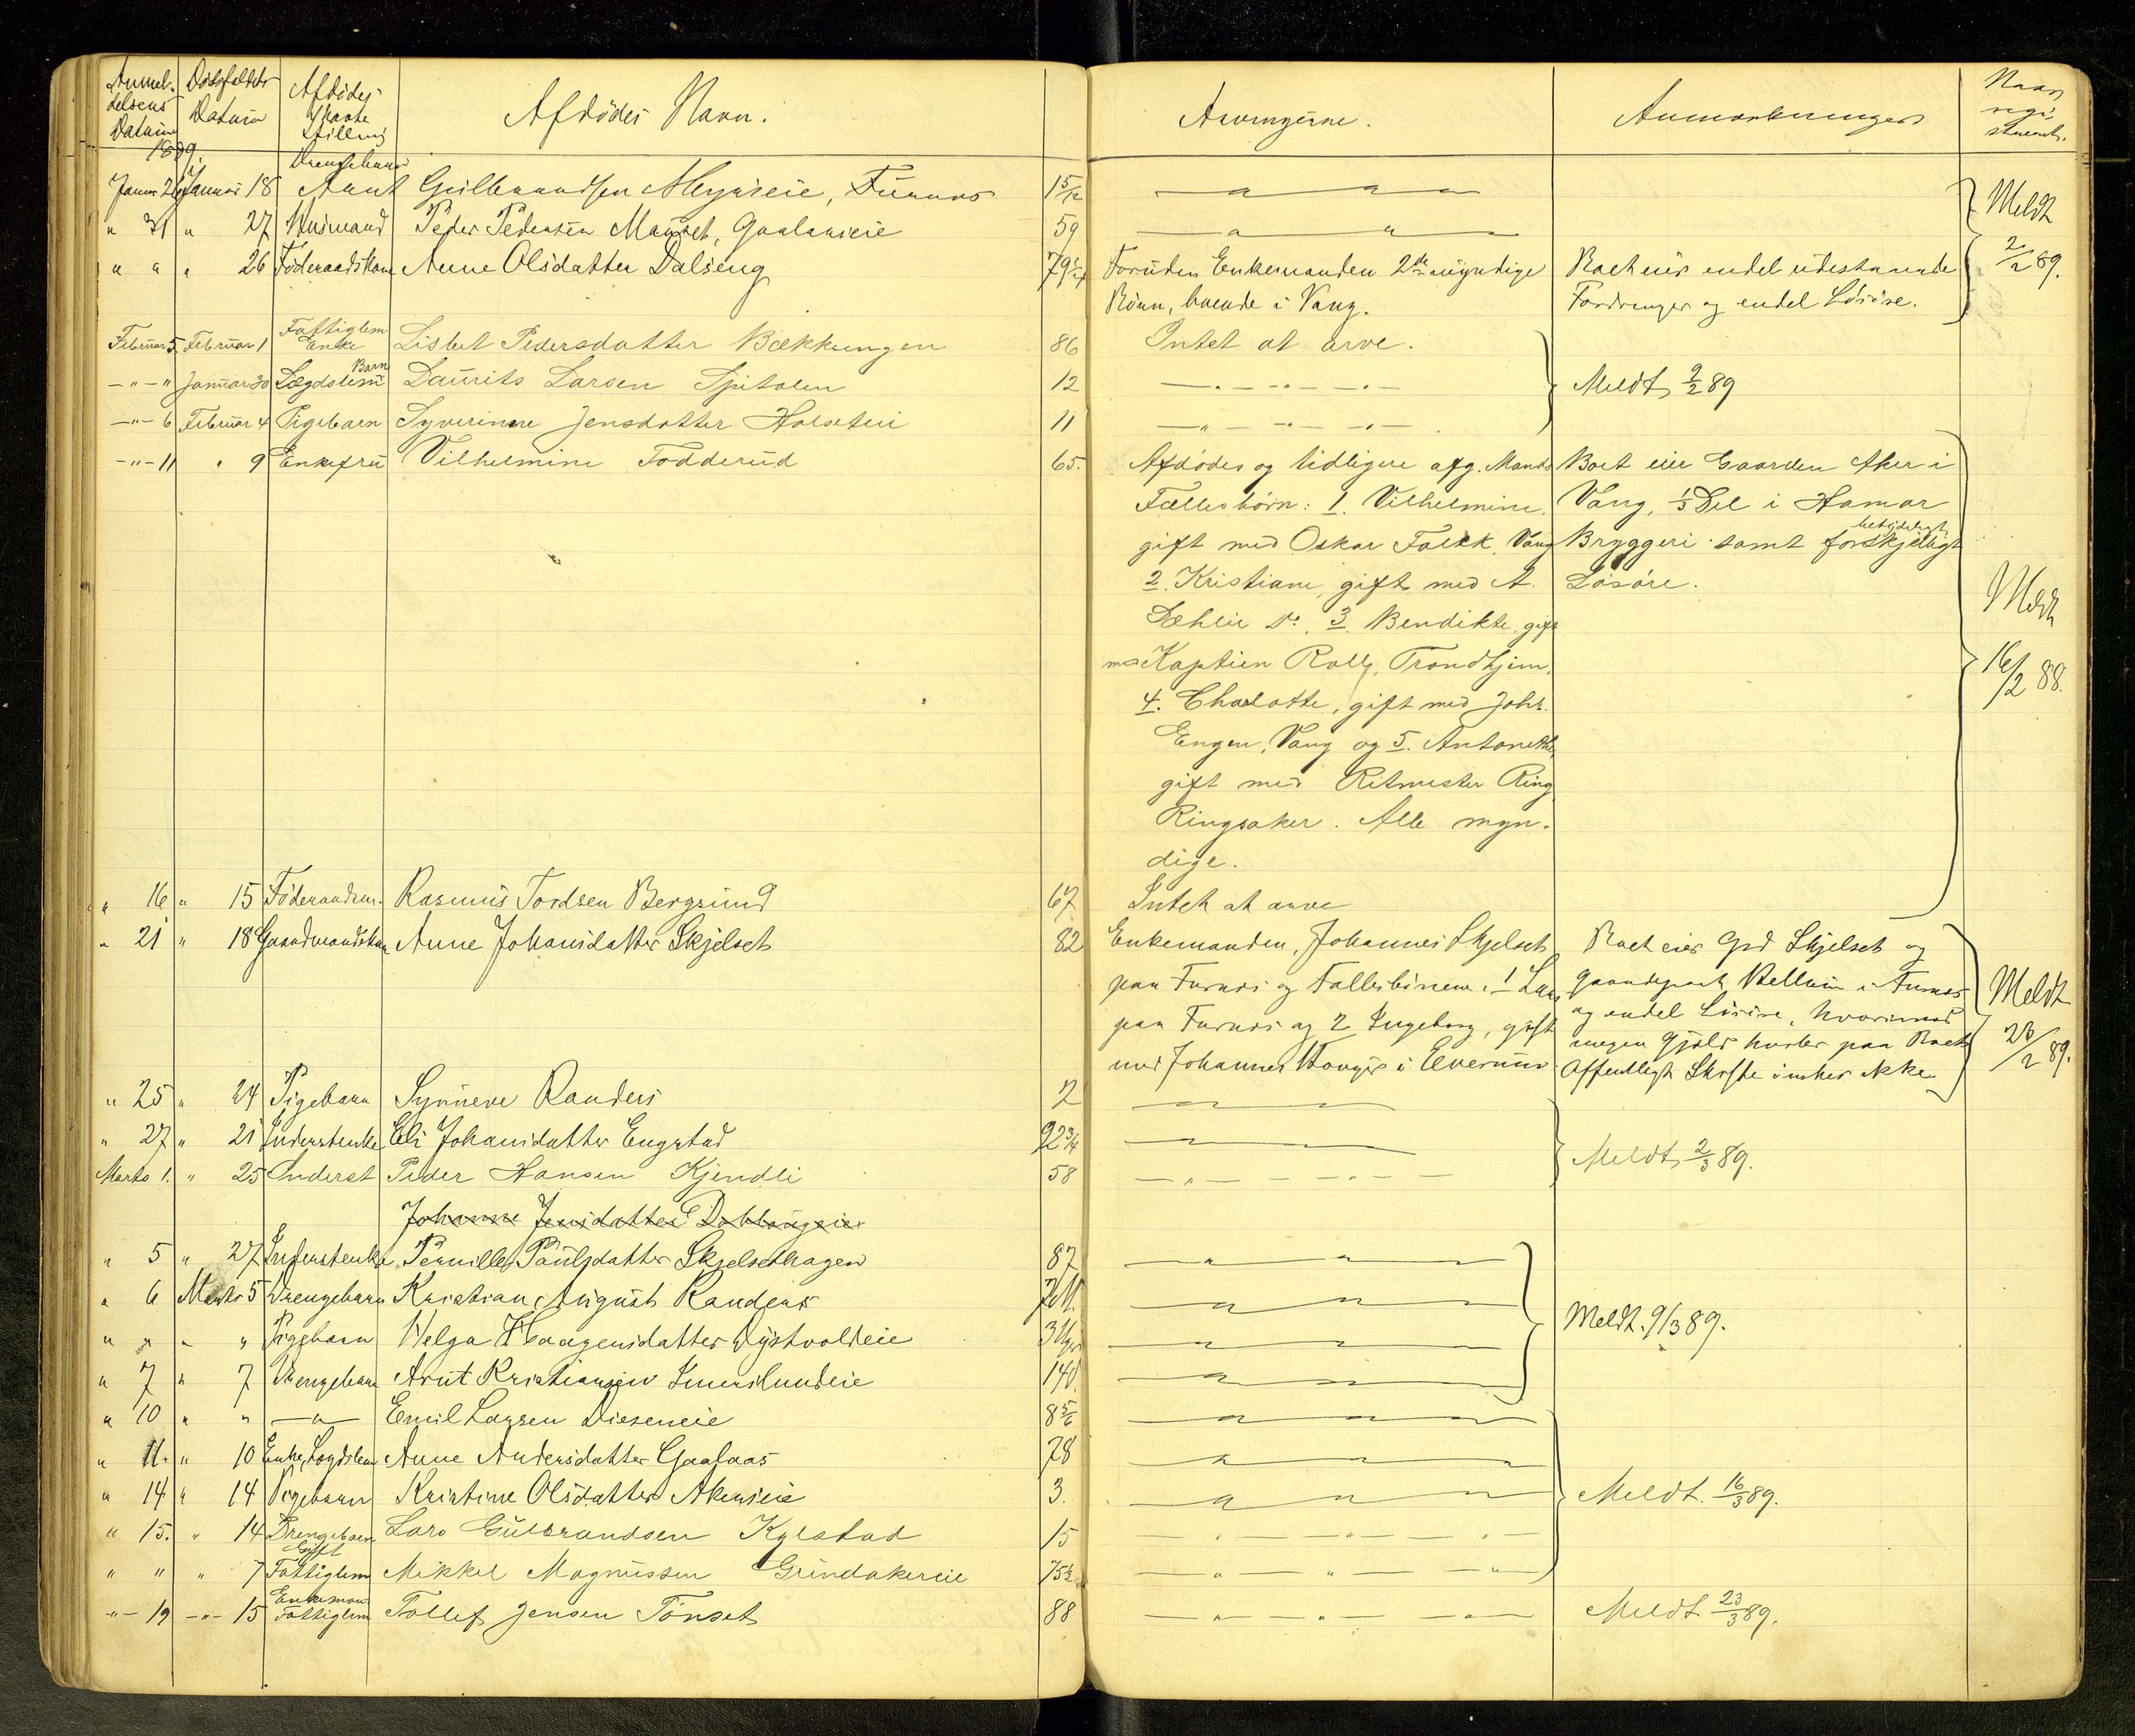 Anmel-
delsens
Datum
Dødsfaldets
Datum
Afdødes
Stilling
Afdødes Navn.
Arvingerne.
Anmærkninger
Naar
1889.
Drengebarn
Januar 18 Aunt Gulbrandsen Furnæs 1 5/12 — " " "
" 31 " 27 Husmand Peder Pedersen Gaalaaseie 59 — " " —
" " " 26 Føderaadskone Anne Olsdatter Dalseng 79 Foruden Enkemanden 2de myndige Boet eier endel udestaaende
Børn, boende i Vang. Fordringer og endel Løsøre.
Meldt
2/2 89.
Fattiglem
Februar 5. Februar 1 Enke Lisbet Pedersdatter Bækkungen 86 Intet at arve.
Barn
— " — " Januar 30 Lægdslem Laurits Larsen Spitalen 12 — " — " — " — Meldt 9/2 89
— " — 6 Februar 4 Pigebarn Syverinne Jensdatter Holseteie 11 — " — " — " —
— " — 11 " 9 Enkefru Vilhelmine Todderud 65. Afdødes og tidligere afg. Mands Boet eier Gaarden Aker i
Fællesbørn: 1. Vilhelmine, Vang, 1/3 Del i Hamar
betydeligt
gift med Oskar Falck, Vang Bryggeri samt forskjelligt
2. Kristiane, gift med A. Løsøre.
Dæhlie Do. 3. Bendikte, gift
med Kaptein Roll, Trondhjem,
4. Charlotte, gift med Johs.
Engen, Vang og 5. Antonette,
gift med Ritmester Ring
Ringsaker. Alle myn-
dige.
16/2 88.
" 16 " 15 Føderaadsm. Rasmus Tordsen Bergsund 67 Intet at arve
" 21 " 18 Gaardmandskone Anne Johansdatter Skjelset 82 Enkemanden, Johannes Skjelset Boet eier Grd Skjelset og
paa Furnæs og Fællesbørnene: 1 Lars gaardepart i Furnæs
paa Furnæs og 2 Ingeborg, gift og endel Løsøre, hvorimod
med Johannes i Elverum megen Gjæld hviler paa Boet
Offentligt Skifte ønskes ikke
Meldt
/2 89.
" 25 " 24 Pigebarn Synneve Randers 2 — " — " —
" 27 " 21 Inderstenke Eli Johansdatter Engstad 92 3/4 — " — " —
Marts 1. " 25 Inderst Peder Hansen Kjendli 58 — " — — " — — Meldt 2/3 89.
Johanne Jensdatter
" 5 " 27 Inderstenke Pernille Paulsdatter Skjelsethagen 87 — " — " —
" 6 Marts 5 Drengebarn Kristian August Randers — " — " —
" " " " Pigebarn Helga Haagensdatter Dystvoldeie 3 Uger — " — " — Meldt. 9/3 89.
" 7 " 7 Drengebarn Arnt Kristiansen — " — " —
" 10 " " — " — Emil Larsen Dieseneie 8 5/6 — " — " — " —
" 11. " 10 Enke, Lægdslem Anne Andersdatter Gaalaas 78 — " — " —
" 14 " 14 Pigebarn Kristine Olsdatter Akerseie 3. — " — " — " Meldt. 16/3 89.
" 15. " 14 Drengebarn Lars Gulbrandsen Kylstad 15 — " — " — " —
Gift
" " " 7 Fattiglem Mikkel Magnussen Grindakereie 75 1/2 — " — " — " —
Enkemand
— " — 19 — " — 15 Fattiglem Tollef Jensen Tønset 88 — " — " — " — Meldt 23/3 89.